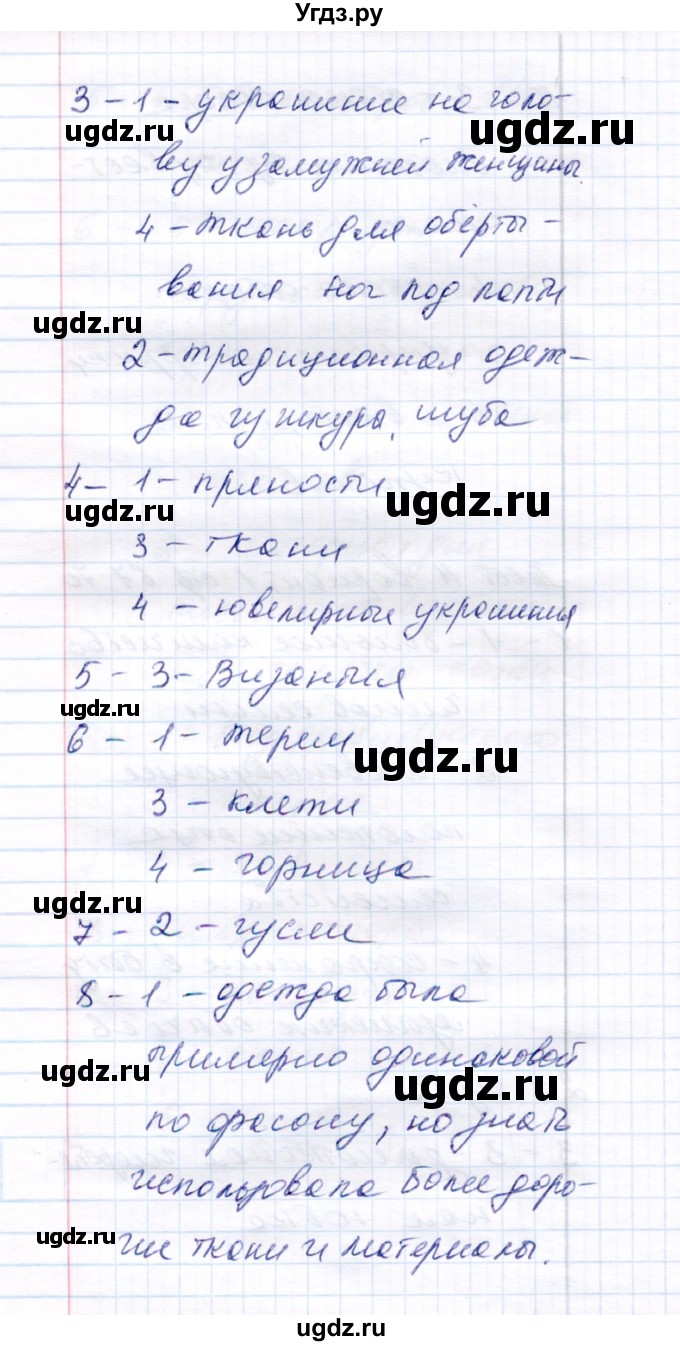 Угдз.ру
3 - 1 - украшение на голо-
ugdz.ru
ugdz.ru
ву у замужней женщины.
4 - ткань для обёрты -
вания ног под лапти
ugdz.ru
2 - традиционная одеж-
да шуба
4 - 1 - пряности
ugdz.ru
ugdz.ru
3 - ткани
4 - ювелирные украшения
5 - 3 - Византия
ugdz.ru
6 - 1 - терем
ugdz.ru
3 - клети
4 - горница
ugdz.ru
7 - 2 - гусли
8 - 1 - одежда была
примерно одинаковой
ugdz.ru
ugdz.ru
по фасону, но знать
использовала более доро-
ugdz.ru
гие ткани и материалы.
ugdz.ru